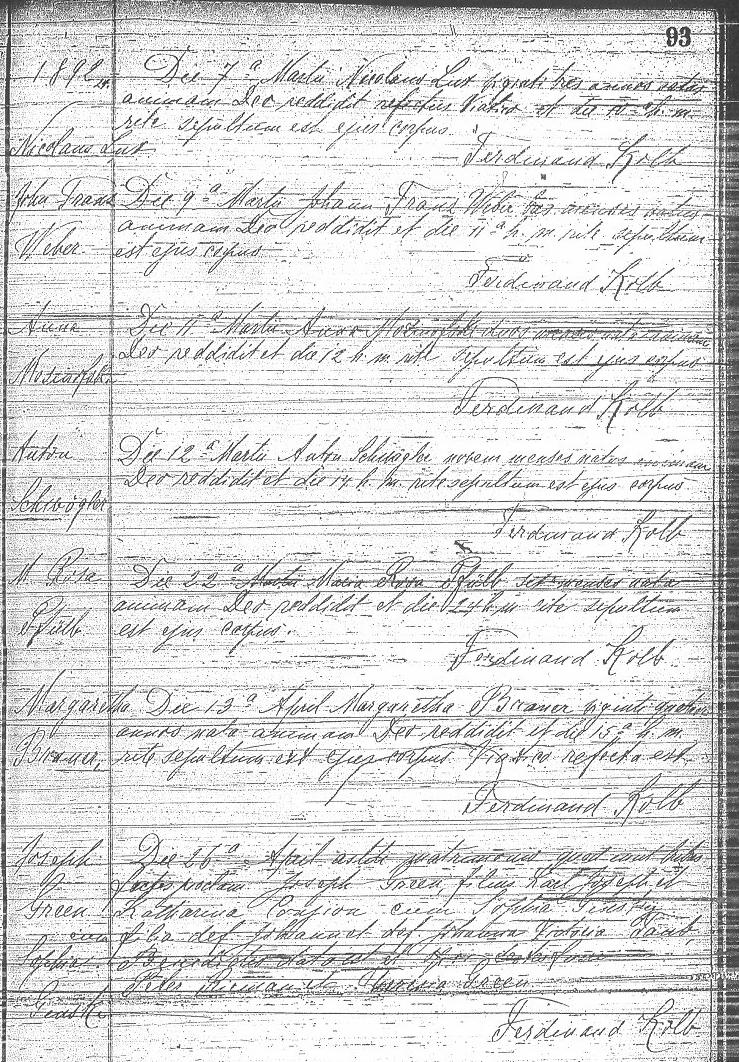 93
1892
Die 7ª Martii Nicolaus Lux viginti tres annos natus
animam Deo reddidit refectus Viatico et die 10ª h. m.
rite sepultum est ejus corpus.
Nicolaus Lux
Ferdinand Kolb
John Franz Die 9ª Martii Johann Franz Weber menses natus
animam Deo reddidit et die 11ª h. m. rite sepultum
Weber est ejus corpus
Ferdinand Kolb
Anna Die 11ª Martii Anna duos menses nata animam
Deo reddidit et die 12 h. m. rite sepultum est ejus corpus
Ferdinand Kolb
Anton Die 12ª Martii Anton Schwögler novem menses natus animam
Deo reddidit et die 14 h. m. rite sepultum est ejus corpus
Schwögler
Ferdinand Kolb
M. Rosa Die 22ª Martii Maria Rosa Pfülb sex menses nata
animam Deo reddidit et die 24 h. m. rite sepultum
Pfülb est ejus corpus.
Ferdinand Kolb
Margaretha Die 13ª April Margaretha Bruner viginti
annos nata animam Deo reddidit et die 15ª h. m.
Bruner, rite sepultum est ejus corpus. Viatico refecta est.
Ferdinand Kolb
Joseph Die 26ª April matrimonio
Joseph Green, filius Karl Joseph et
Green Katharina cum Sophia
cum filia def. Johann et def. Johanna
Sophia data est
Peter et Green
Ferdinand Kolb